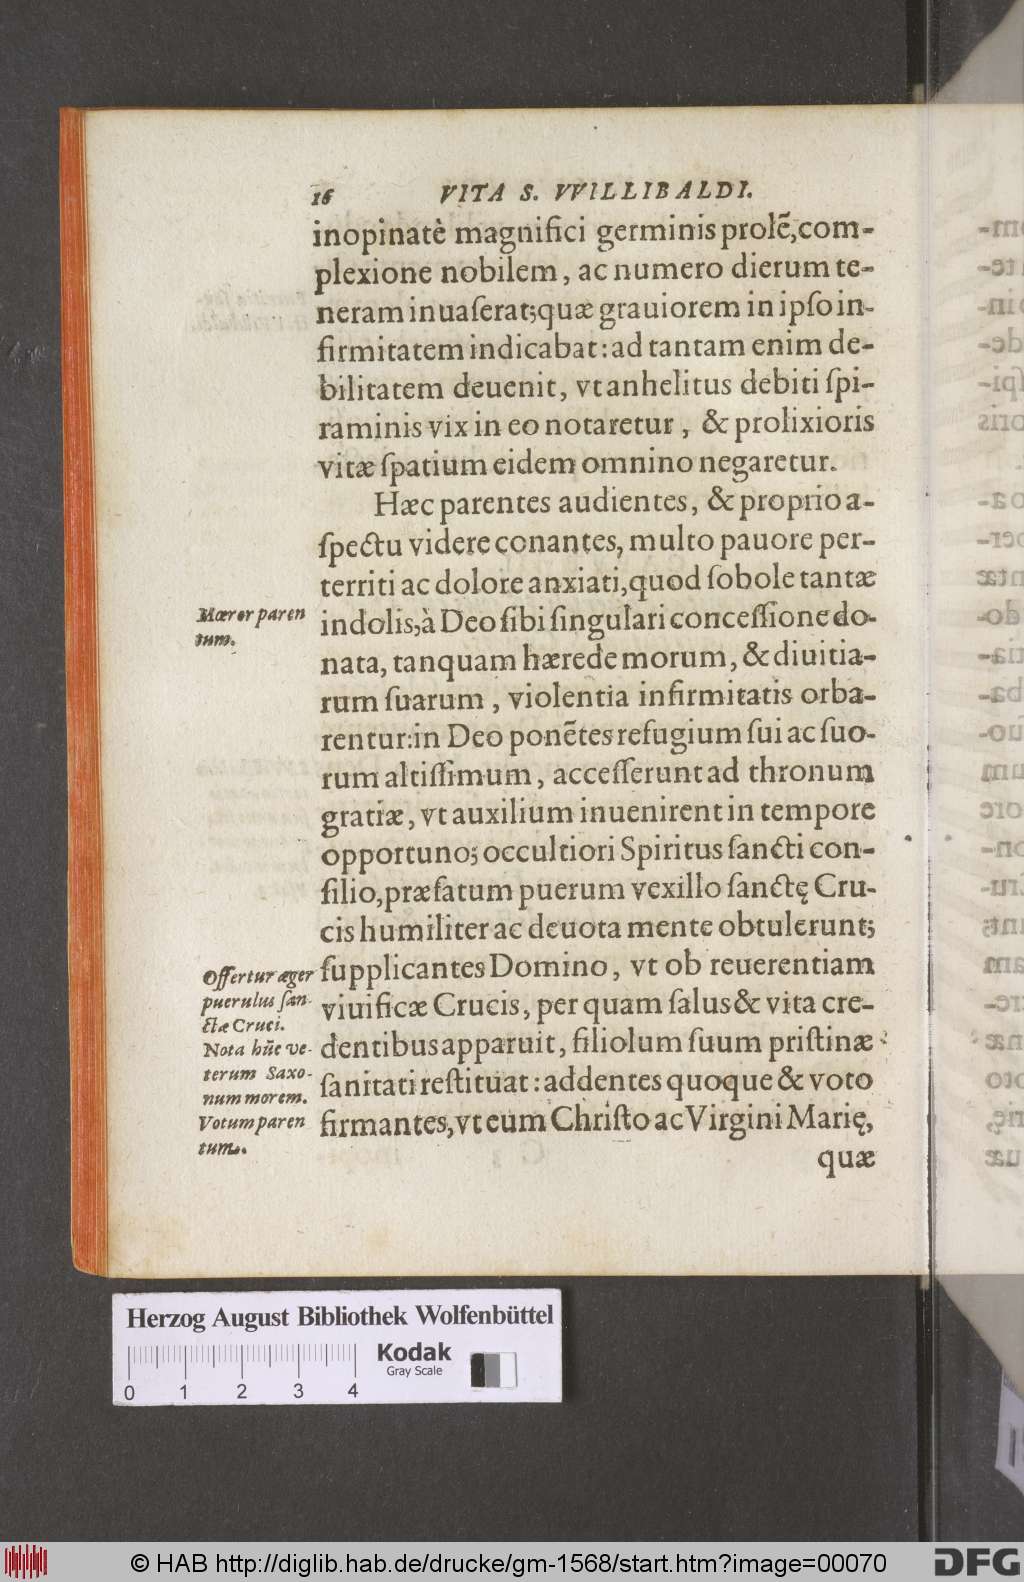 16 VITA S. VVILLIBALDI.
inopinatè magnifici germinis prolẽ, com-
plexione nobilem, ac numero dierum te-
neram inuaſerat; quæ grauiorem in ipſo in-
firmitatem indicabat: ad tantam enim de-
bilitatem deuenit, vt anhelitus debiti ſpi-
raminis vix in eo notaretur, & prolixioris
vitæ ſpatium eidem omnino negaretur.
Hæc parentes audientes, & proprio a-
ſpectu videre conantes, multo pauore per-
territi ac dolore anxiati, quod ſobole tantæ
Mœror paren
tum.
indolis, à Deo ſibi ſingulari conceſſione do-
nata, tanquam hærede morum, & diuitia-
rum ſuarum, violentia infirmitatis orba-
rentur: in Deo ponẽtes refugium ſui ac ſuo-
rum altiſſimum, acceſſerunt ad thronum
gratiæ, vt auxilium inuenirent in tempore
opportuno; occultiori Spiritus ſancti con-
ſilio, præfatum puerum vexillo ſanctę Cru-
cis humiliter ac deuota mente obtulerunt;
Offertur æger
puerulus ſan-
ctæ Cruci.
Nota hũc ve-
terum Saxo-
num morem.
Votum paren
tum.
ſupplicantes Domino, vt ob reuerentiam
viuificæ Crucis, per quam ſalus & vita cre-
dentibus apparuit, filiolum ſuum priſtinæ
ſanitati reſtituat: addentes quoque & voto
firmantes, vt eum Chriſto ac Virgini Marię,
quæ
Herzog August Bibliothek Wolfenbüttel
Kodak
Gray Scale
0 1 2 3 4
© HAB http://diglib.hab.de/drucke/gm-1568/start.htm?image=00070
DFG